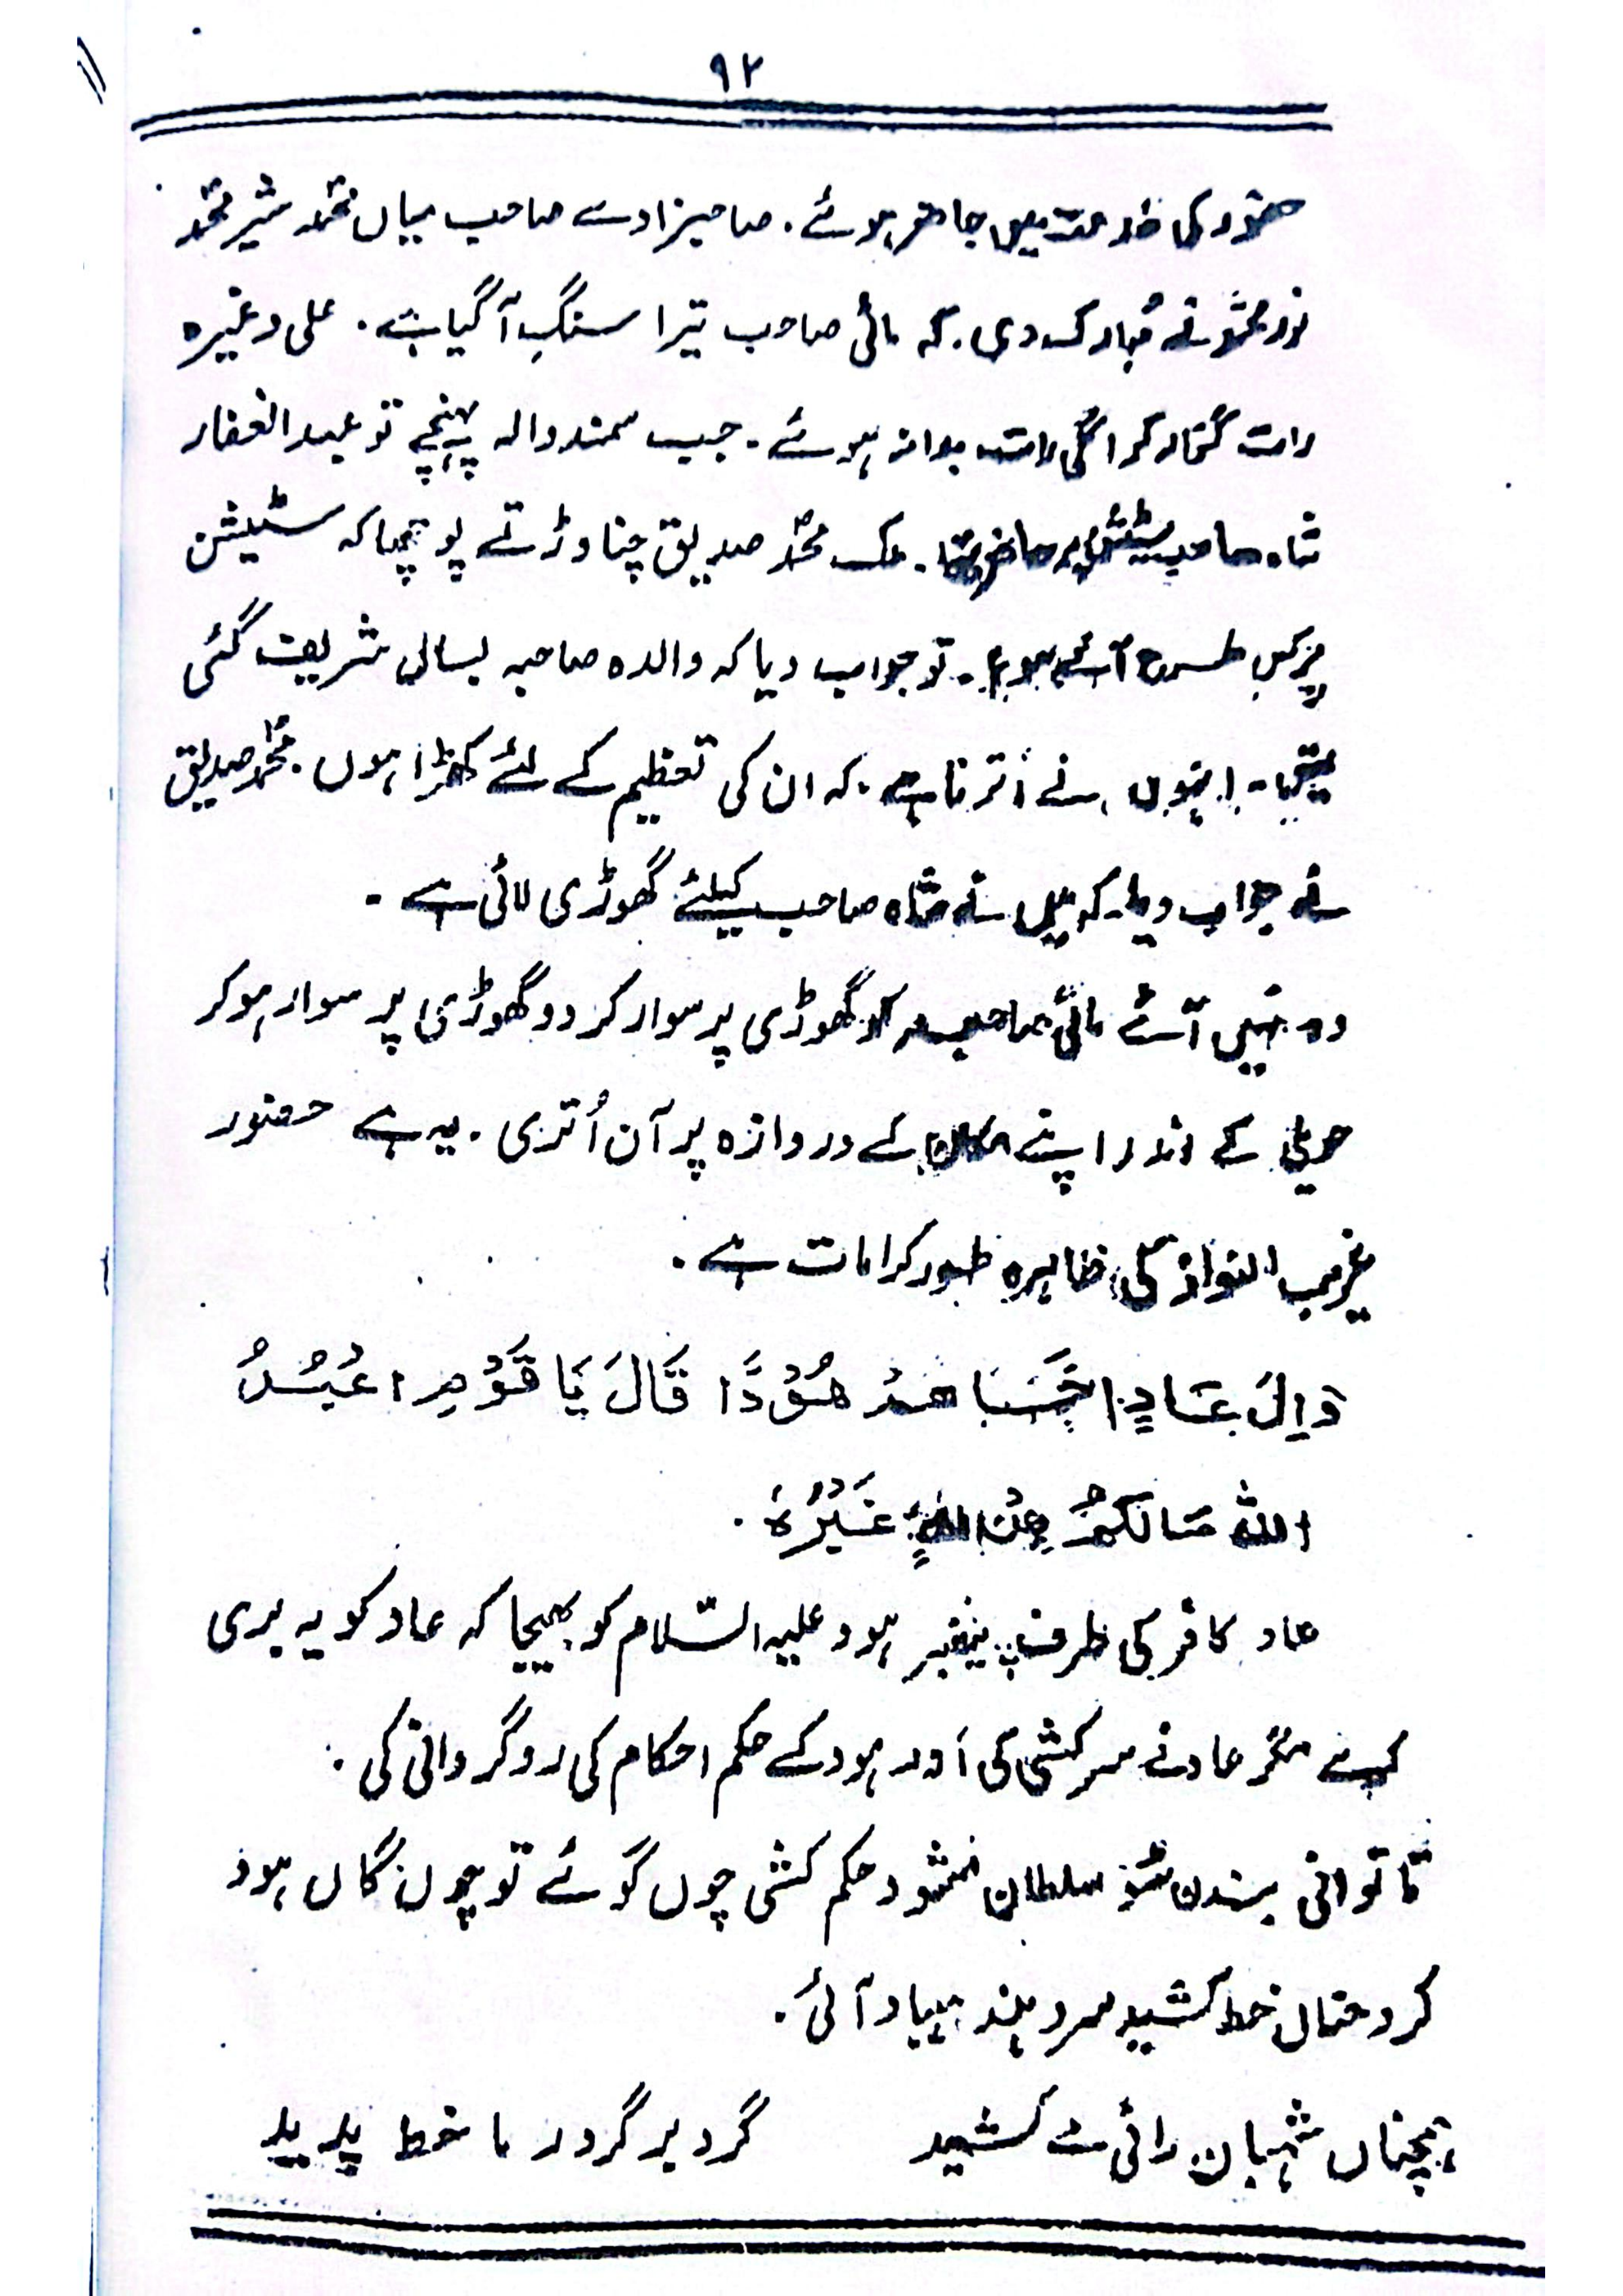 ۹۲
حضور کی خدمت میں حاضر ہوئے۔ صاحبزادے صاحب میاں محمد شیر محمد
نور محمد نے مُبارک دی۔ کہ مائی صاحب تیرا سنگِ آ گیا ہے۔ علی وغیرہ
رات گزار کر اگلی رات روانہ ہوئے۔ جب سمندوالہ پہنچے تو عبدالغفار
شاہ صاحب سٹیشن پر حاضر تھا۔ ملک محمدؐ صدیق چناوڑ نے پوچھا کہ سٹیشن
پر کس طرح آئے ہو۔ تو جواب دیا کہ والدہ صاحبہ بسالی شریف گئی
تھیں۔ انہوں نے اُترنا ہے۔ کہ ان کی تعظیم کے لئے کھڑا ہوں۔ محمدؐ صدیق
نے جواب دیا۔ کہ میں نے شاہ صاحب کیلئے گھوڑی لائی ہے۔
وہ نہیں آئے مائی صاحبہ کو گھوڑی پر سوار کر دو گھوڑی پر سوار ہو کر
حویلی کے اندر اپنے مکان کے دروازہ پر آن اُتری۔ یہ ہے حضور
غریب النواز کی ظاہرہ ظہور کرامات ہے۔
وَاِلیٰ عَادٍ اَخَاھُمْ ھُوْدًا قَالَ یَا قَوْمِ اعْبُدُ
اللہ مَالَکُمْ مِنْ اِلٰہٍ غَیْرُہٗ۔
عاد کافر کی طرف پیغمبر ہود علیہ السّلام کو بھیجا کہ عاد کو یہ بری
کرے مگر عاد نے سرکشی کی اَور ہود کے حکم احکام کی روگردانی کی۔
تا توانی بندن شو سلطان مشو حکم کشی چوں گوئے تو چوں گاں ہود
کرد خط کشید سرد بیاد آئی۔
ہمچناں شہبان رائی مے کشید گرد بر گرد ما خط پدید